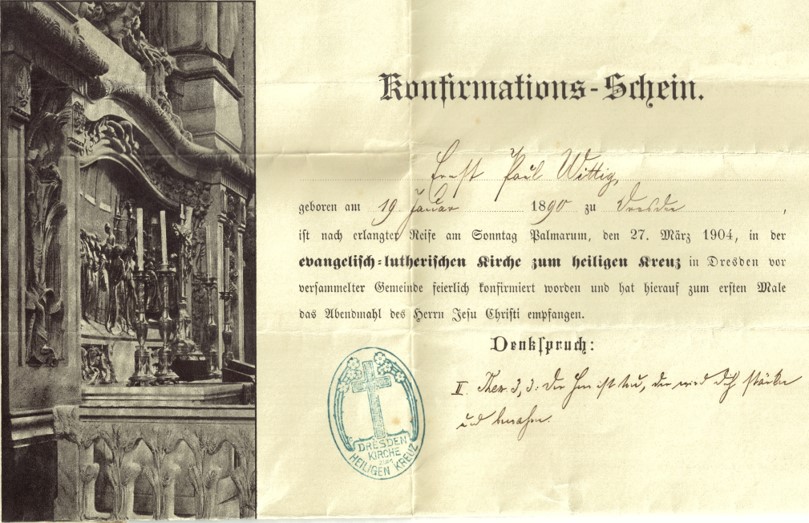 Konfirmations-Schein.
Ernst Paul Wittig,
geboren am 19 Januar 1890 zu Dresden,
ist nach erlangter Reife am Sonntag Palmarum, den 27. März 1904, in der
evangelisch-lutherischen Kirche zum heiligen Kreuz in Dresden vor
versammelter Gemeinde feierlich konfirmiert worden und hat hierauf zum ersten Male
das Abendmahl des Herrn Jesu Christi empfangen.
Denkspruch:
II. Thes. 3, 3. Der Herr ist treu, der wird dich stärken
und bewahren.
DRESDEN
KIRCHE
ZUM
HEILIGEN KREUZ